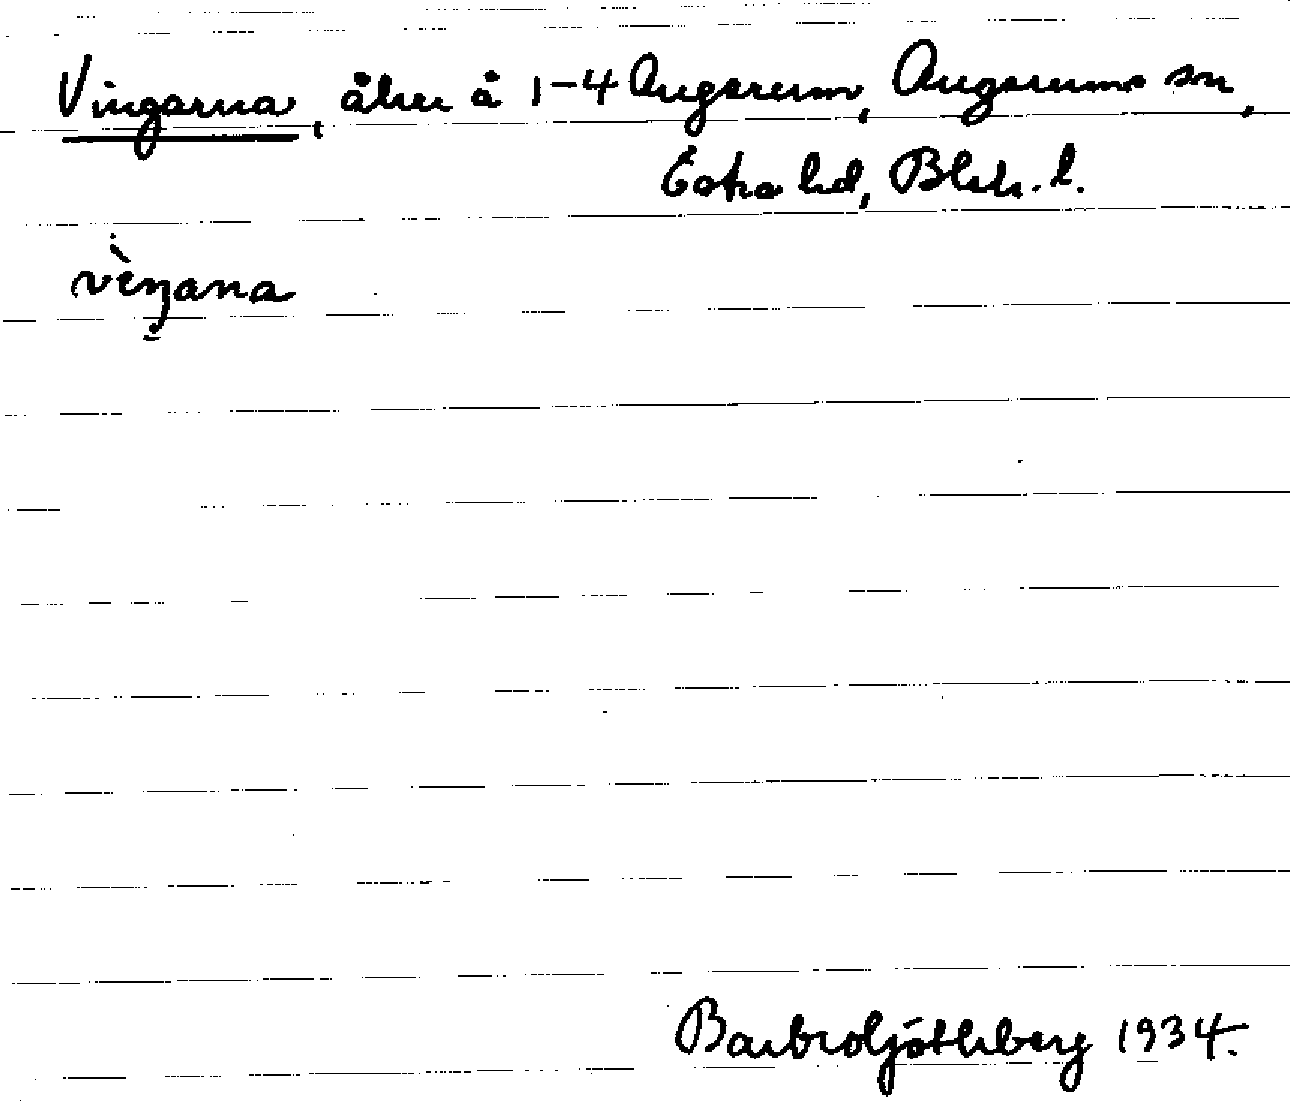 Vingarna, åker å 1-4 Augerum, Augerums sn,
Östra hd, Blek. l.
vèŋana
Barbro Götheberg 1934.